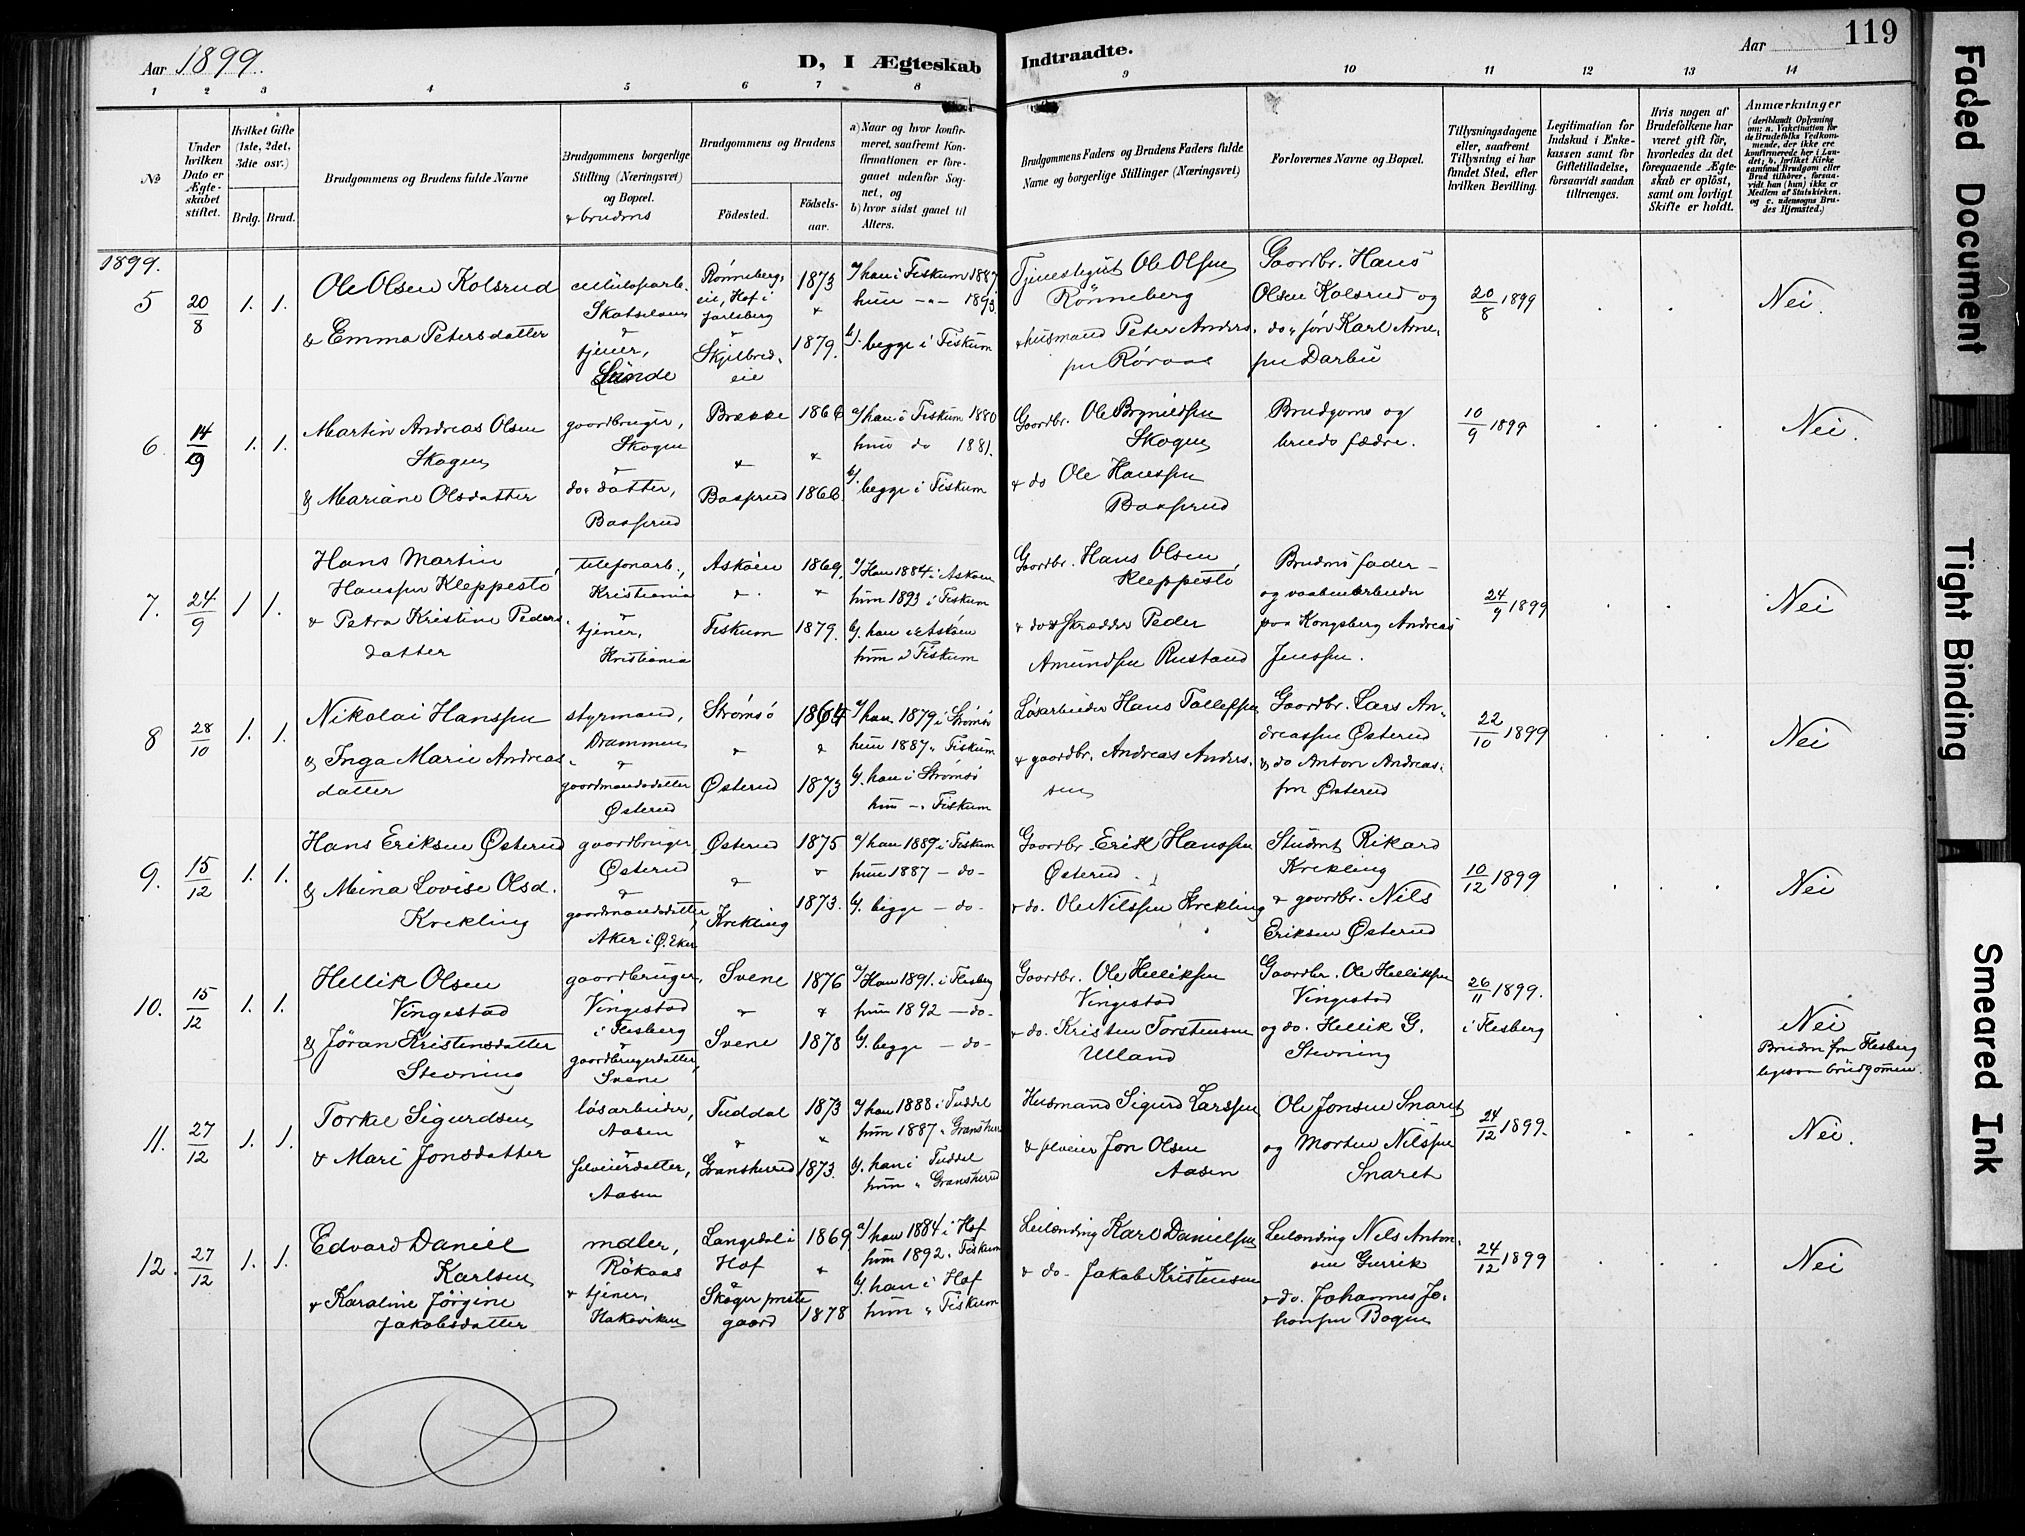 Aar 1899.
D, I Ægteskab
Indtraadte.
Aar
119
1 2 3 4 5 6 7 8
9 10 11 12 13 14
№
Under hvilken Dato er Ægteskabet stiftet.
Hvilket Gifte (1ste, 2det, 3die osv.)
Brdg. Brud.
Brudgommens og Brudens fulde Navne
Brudgommens borgerlige Stilling (Næringsvei) og Bopæl.
& brudens
Brudgommens og Brudens
Födested.
Födselsaar.
a) Naar og hvor konfirmeret, saafremt Konfirmationen er foregaaet udenför Sognet, og
b) hvor sidst gaaet til Alters.
Brudgommens Faders og Brudens Faders fulde Navne og borgerlige Stillinger (Næringsvei)
Forlovernes Navne og Bopæl.
Tillysningsdagene eller, saafremt Tillysning ei har fundet Sted, efter hvilken Bevilling.
Legitimation for Indskud i Enkekassen samt for Giftetilladelse, forsaavidt saadan tiltrænges.
Hvis nogen af Brudefolkene har været gift för, hvorledes da det foregaaende Ægteskab er oplöst, samt om lovligt Skifte er holdt.
Anmærkninger
(deriblandt Oplysning om: a. Vakcination for de Brudefolks Vedkommende, der ikke ere konfirmerede her i Landet; b. hvilket Kirkesamfund Brudgom eller Brud tilhörer, forsaavidt han (hun) ikke er Medlem af Statskirken, og c. udensogns Brudes Hjemsted.)
1899.
5 20/8 1. 1.
Ole Olsen Kolsrud
& Emma Petersdatter
celulosarb.
Skotselven
&
tjener,
Lunde
Rønneberg,
eie, Hof i
Jarlsberg
&
Skjelbred,
eie
1873
&
1879.
a/ han i Fiskum 1887
hun -"- 1893
b/. begge i Fiskum
Tjenestegut Ole Olsen
Rönneberg
& husmand Peter Anders.
sen Röraas
Gaardbr. Hans
Olsen Kolsrud og
do. søn Karl Arne
sen Darbu
20/8 1899
Nei.
6 14/9 1. 1.
Martin Andreas Olsen
Skogen
& Mariane Olsdatter
gaardbruger,
Skogen
&
do. datter,
Baasrud
Brække
&
Baasrud
1866
&
1866
a/ han i Fiskum 1880
hun do 1881.
b/. begge i Fiskum
Gaardbr. Ole Brynildsen
Skogen
& do Ole Hanssen
Baasrud
Brudgoms og
bruds fædre.
10/9 1899
Nei.
7. 24/9 1 1.
Hans Martin
Hanssen Kleppestö
& Petra Kristine Peders.
datter
telefonarb.,
Kristiania
&
tjener,
Kristiania
Askøen
&
Fiskum
1869.
&
1879.
a/ Han 1884 i Askøen
hun 1893 i Fiskum
b/. han i Askøen
hun i Fiskum
Gaardbr. Hans Olsen
Kleppestö
& do & skrædder Peder
Amundsen Rustand
Brudens fader -
og vaabenarbeider
paa Kongsberg Andreas
Jenssen.
24/9 1899
Nei
8 28/10 1. 1.
Nikolai Hanssen
& Inga Marie Andreas.
datter
styrmand,
Drammen
&
gaardmandsdatter
Østerud
Strømsö
&
Østerud
1864
&
1873
a/ han 1879 i Strømsö
hun 1887 " Fiskum
b/. han i Strømsö
hun -" Fiskum
Løsarbeider Hans Tollefsen
& gaardbr. Andreas Anders.
sen
Gaardbr. Lars An-
dreassen Østerud
& do Anton Andreas.
sen Østerud
22/10 1899
Nei
9. 15/12 1. 1.
Hans Eriksen Østerud
& Mina Lovise Olsd.
Krekling
gaardbruger
Østerud
&
gaardmandsdatter,
Aker i Ø. Eker
Østerud
&
Krekling
1875
&
1873.
a/ han 1889 i Fiskum
hun 1887 - do-
b/. begge - do-
Gaardbr. Erik Hanssen
Østerud.
& do. Ole Nilssen Krekling
Student Rikard
Krekling
& gaardbr. Nils
Eriksen Østerud
10/12 1899
Nei
10. 15/12 1. 1.
Hellik Olsen
Vingestad
& Jöran Kristensdatter
Stevning
gaardbruger,
Vingestad
i Flesberg
&
gaardbrugerdatter,
Svene
Svene
&
Svene
1876
&
1878
a/ Han 1891. i Flesberg
hun 1892 - do-
b/. begge - do-
Gaardbr. Ole Helliksen
Vingestad
& do. Kristen Torstensen
Ulland
Gaardbr. Ole Helliksen
Vingestad
og do. Hellik G.
Stevning
26/11 1899.
i Flesberg
Nei
Bruden fra Flesberg
ligesom brudgommen.
11. 27/12 1. 1.
Torkel Sigurdsen
& Mari Jonsdatter
løsarbeider,
Aasen
&
selveierdatter,
Aasen
Tuddal
&
Gransherud
1873
&
1873.
a/ han 1888 i Tuddel
hun 1887 " Gransherud
b/. han i Tuddel
hun " Gransherud
Husmand Sigurd Larssen
& selveier Jon Olsen
Aasen
Ole Jonsen Snaret
og Morten Nilssen
Snaret
24/12 1899.
Nei.
12. 27/12 1. 1.
Edvard Daniel
Karlsen
& Karoline Jörgine
Jakobsdatter
maler,
Rökaas
& tjener,
Hakaviken
Langedal i
Hof
&
Skoger preste
gaard
1869
&
1878
a/ han 1884 i Hof
hun 1892 " Fiskum
b/. han i Hof
hun " Fiskum
Leilænding Karl Danielsen
& do. Jakob Kristensen
Leilænding Nils Anton.
sen Gurrik
& do. Johannes Jo.
hansen Bogen
24/12 1899
Nei
Faded Document
Tight Binding
Smeared Ink